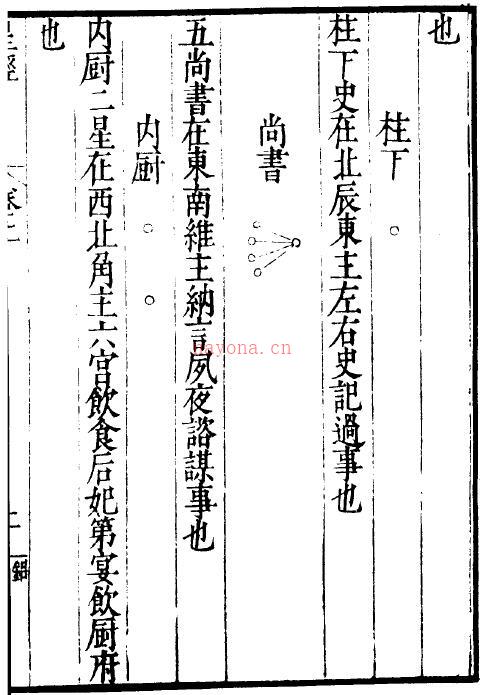 也
柱下
柱下史在北辰東主左右史記過事也
尚書
五尚書在東南維主納言夙夜諮謀事也
内厨
内厨二星在西北角主六宮飲食后妃第宴飲厨府
也
星經
卷上
二
nayona.cn